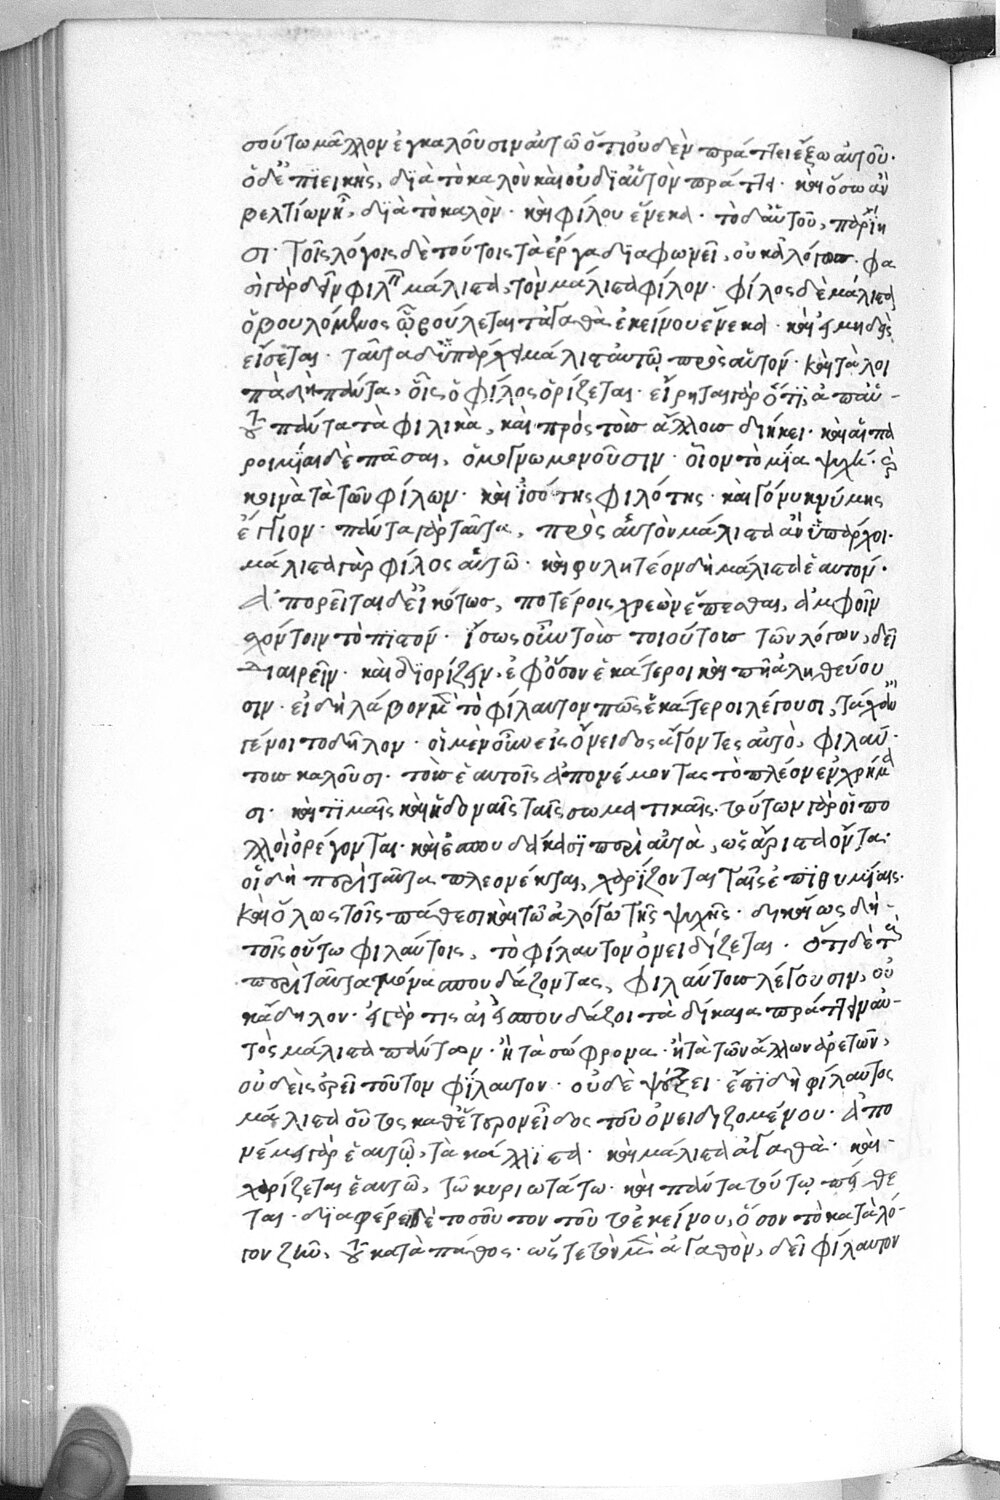 σούτω μᾶλλον ἐγκαλοῦσιν αὐτῷ ὅτι οὐδὲν πράττει ἔξω αὐτοῦ·
ὁ δ' ἐπιεικὴς, διὰ τὸ καλὸν καὶ οὐ δι' αὑτὸν πράττει· καὶ ὅσω ἂν
βελτίων ᾖ, διὰ τὸ καλὸν· καὶ φίλου ἕνεκα· τὸ δ' αὑτοῦ, παρίη
σι· τοῖς λόγοις δὲ τούτοις τὰ ἔργα διαφωνεῖ, οὐκ ἀλόγως· φα
σὶ γὰρ δεῖν φιλεῖν μάλιστα, τὸν μάλιστα φίλον· φίλος δὲ μάλιστα
ὁ βουλόμενος ᾧ βούλεται τἀγαθὰ ἐκείνου ἕνεκα· καὶ εἰ μηδεὶς
εἴσεται· ταῦτα δ' ὑπάρχει μάλιστ' αὐτῷ πρὸς αὑτόν· καὶ τὰ λοι
πὰ δὴ πάντα, οἷς ὁ φίλος ὁρίζεται· εἴρηται γὰρ ὅτι, ἀπ' αὐ-
τοῦ πάντα τὰ φιλικὰ, καὶ πρὸς τοὺς ἄλλους διήκει· καὶ αἱ πα
ροιμίαι δὲ πᾶσαι, ὁμογνωμονοῦσιν· οἷον τὸ μία ψυχή· καὶ
κοινὰ τὰ τῶν φίλων· καὶ ἰσότης φιλότης· καὶ γόνυ κνήμης
ἔγγιον· πάντα γὰρ ταῦτα, πρὸς αὑτὸν μάλιστα ἂν ὑπάρχοι·
μάλιστα γὰρ φίλος αὑτῷ· καὶ φιλητέον δὴ μάλιστα ἑαυτόν·
Ἀπορεῖται δ' εἰκότως, ποτέροις χρεὼν ἕπεσθαι, ἀμφοῖν
ἐχόντοιν τὸ πιστόν· ἴσως οὖν τοὺς τοιούτους τῶν λόγων, δεῖ
διαιρεῖν· καὶ διορίζειν, ἐφ' ὅσον ἑκάτεροι καὶ πῇ ἀληθεύου
σιν· εἰ δὴ λάβοιμεν τὸ φίλαυτον πῶς ἑκάτεροι λέγουσι, τάχ' ἂν
γένοιτο δῆλον· οἱ μὲν οὖν εἰς ὄνειδος ἄγοντες αὐτὸ, φιλαύ-
τους καλοῦσι· τοὺς ἑαυτοῖς ἀπονέμοντας τὸ πλέον ἐν χρήμα
σι· καὶ τιμαῖς καὶ ἡδοναῖς ταῖς σωματικαῖς· τούτων γὰρ οἱ πο
λλοὶ ὀρέγονται· καὶ ἐσπουδάκασι περὶ αὐτὰ, ὡς ἄριστα ὄντα·
οἱ δὴ περὶ ταῦτα πλεονέκται, χαρίζονται ταῖς ἐπιθυμίαις·
καὶ ὅλως τοῖς πάθεσι καὶ τῷ ἀλόγῳ τῆς ψυχῆς· δικαίως δὴ-
τοῖς οὕτω φιλαύτοις, τὸ φίλαυτον ὀνειδίζεται· ὅτι δὲ τοὺς
περὶ ταῦτα μόνα σπουδάζοντας, φιλαύτους λέγουσιν, οὐ
κ ἄδηλον· εἰ γάρ τις ἀεὶ σπουδάζοι τὰ δίκαια πράττειν αὐ-
τὸς μάλιστα πάντων· ἢ τὰ σώφρονα· ἢ τὰ τῶν ἄλλων ἀρετῶν,
οὐδεὶς ἐρεῖ τοῦτον φίλαυτον· οὐδὲ ψέξει· ἐπεὶ δὴ φίλαυτος
μάλιστα οὗτος καθ' ἕτερον εἶδος τοῦ ὀνειδιζομένου· ἀπο
νέμει γὰρ ἑαυτῷ, τὰ κάλλιστα· καὶ μάλιστα ἀγαθὰ· καὶ-
χαρίζεται ἑαυτῷ, τῷ κυριωτάτῳ· καὶ πάντα τούτῳ πείθε
ται· διαφέρει δὲ τοσοῦτον τοῦτο ἐκείνου, ὅσον τὸ κατὰ λό-
γον ζῆν, τοῦ κατὰ πάθος· ὥστε τὸν μὲν ἀγαθὸν, δεῖ φίλαυτον